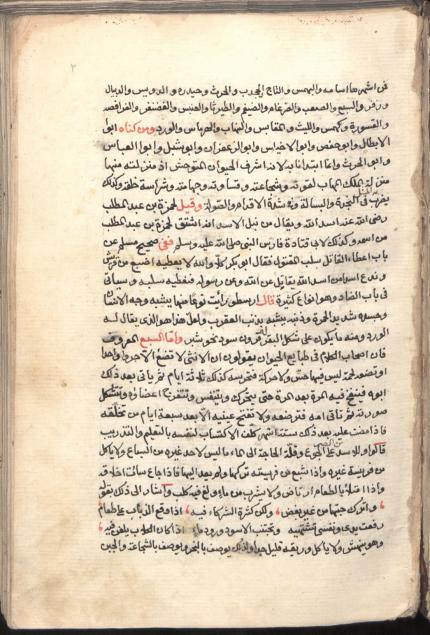 فمن اشهرها اسامة والبيهس والتاج والجخدب والحرث وحيدرة والدوكس والرئبال
وزفر والسبع والصعب والضرغام والضيغم والطيثار والعنبس والغضنفر والفرافصة
والقسورة وكهمس والليث والمتأنس والمتهيب والهرماس والورد ومن كناه ابوا
الابطال وابو حفص وابو الاخياس وابو الزعفران وابو شبل وابوا العباس
وابو الحرث وانما ابتدانا به لانه اشرف الحيوان المتوحش اذ منزلته منها
منزلة الملك المهاب لقوته وشجاعته وقساوته وجهامته وشراسة خلقه ولذلك
يضرب به المثل في النجدة والبسالة وشدة الاقدام والصولة وقيل لحمزة بن عبد المطلب
رضى الله عنه اسد الله ويقال من نبل الاسد انه اشتق لحمزة بن عبد المطلب
من اسمه وكذلك لابي قتادة فارس النبي صلى الله عليه وسلم ففي صحيح مسلم في
باب اعطاء القاتل سلب المقتول فقال ابو بكر كلا والله لا يعطيه اضيبع من قريش
وندع اسدا من اسد الله يقاتل عن الله وعن رسوله فيعطيه سلبه وسيأتي
في باب الضاد وهو انواع كثيرة قال ارسطو رأيت نوعا منها يشبه وجه الانسان
وجسده شديد الحمرة وذنبه يشبه بذنب العقرب ولعل هذا هو الذي يقال له
الورد ومنه ما يكون على شكل البقر له قرون سود نحو شبر واما السبع المعروف
فان اصحاب الكلام في طبايع الحيوان يقولون ان الانثى لا تضع الا جروا واحدا
وتضعه لحمة ليس فيها حس ولا حركة فتحرسه كذلك ثلاثة ايام ثم ياتي بعد ذلك
ابوه فينفخ فيه المرة بعد المرة حتى يتحرك ويتنفس وتنفرج اعضاؤه وتتشكل
صورته ثم تاتي امه فترضعه ولا تفتح عينيه الا بعد سبعة ايام من تخلقه
فاذا مضت عليه بعد ذلك ستة اشهر كلف الاكتساب لنفسه بالتعليم والتدريب
قالوا وللاسد من الصبر على الجوع وقلة الحاجة الى الماء ما ليس لاحد غيره من السباع ولا ياكل
من فريسة غيره واذا شبع من فريسته تركها ولم يعد اليها فاذا جاع ساءت اخلاقه
واذا امتلأ بالطعام ارتاض ولا يشرب من ماء ولغ فيه كلب واشار الى ذلك بقوله
، واترك حبها من غير بغض ، ولكن كثرة الشركاء فيه ، اذا وقع الذباب على طعام
رفعت يدي ونفسي تشتهيه وتجتنب الاسود ورود ماء اذا كان الكلاب يلغن فيه ،
وهو ينهش ولا ياكل وريقه قليل جدا ولذلك يوصف بالبخر ويوصف بالشجاعة والجبن